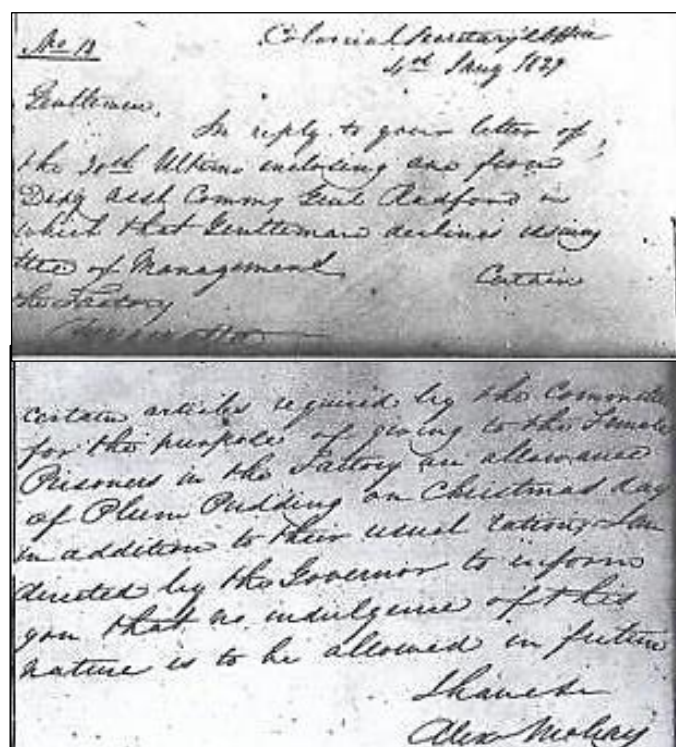 No 18
Colonial Secretary's Office
4th Aug 1829
Gentlemen,
In reply to your letter of,
the 30th Ultimo enclosing one from
Depy Asst Commy Genl Radford in
which that Gentleman declines using
ttee of Management
Certain
the Factory
certain articles required by the Committee
for the purpose of giving to the Female
Prisoners in the Factory an allowance
of Plum Pudding on Christmas day
in addition to their usual rations, I am
directed by the Governor to inform
you that no indulgence of this
nature is to be allowed in future
I have &c
Alex McLeay